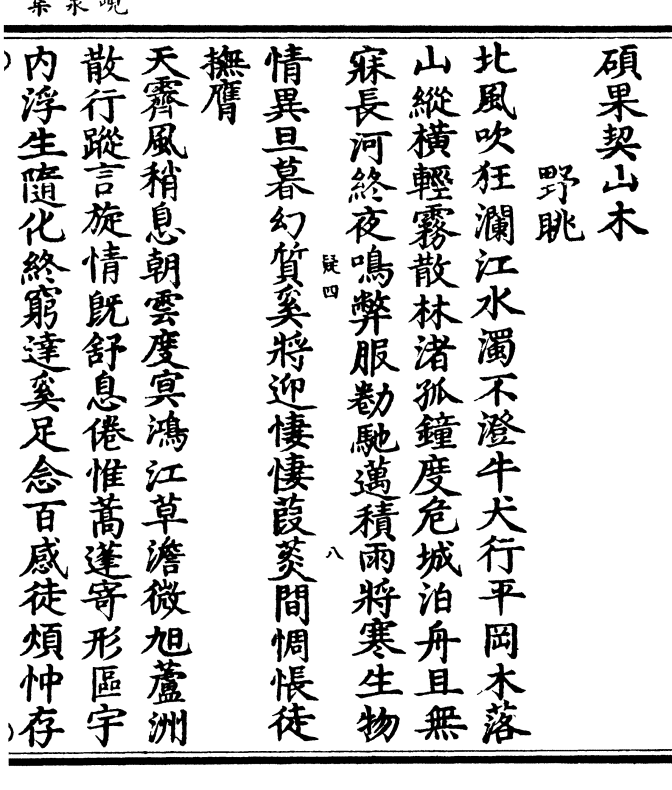 碩果契山木
野眺
北風吹狂瀾江水濁不澄牛犬行平岡木落
山縱橫輕霧散林渚孤鐘度危城泊舟且無
寐長河終夜鳴弊服勌馳邁積雨將寒生物
疑四
八
情異旦暮幻質奚將迎悽悽葭菼間惆悵徒
撫膺
天霽風稍息朝雲度㝠鴻江草澹微旭蘆洲
散行蹤言旋情既舒息倦惟蒿蓬寄形區宇
内浮生隨化終窮達奚足念百感徒煩忡存
峴泉集